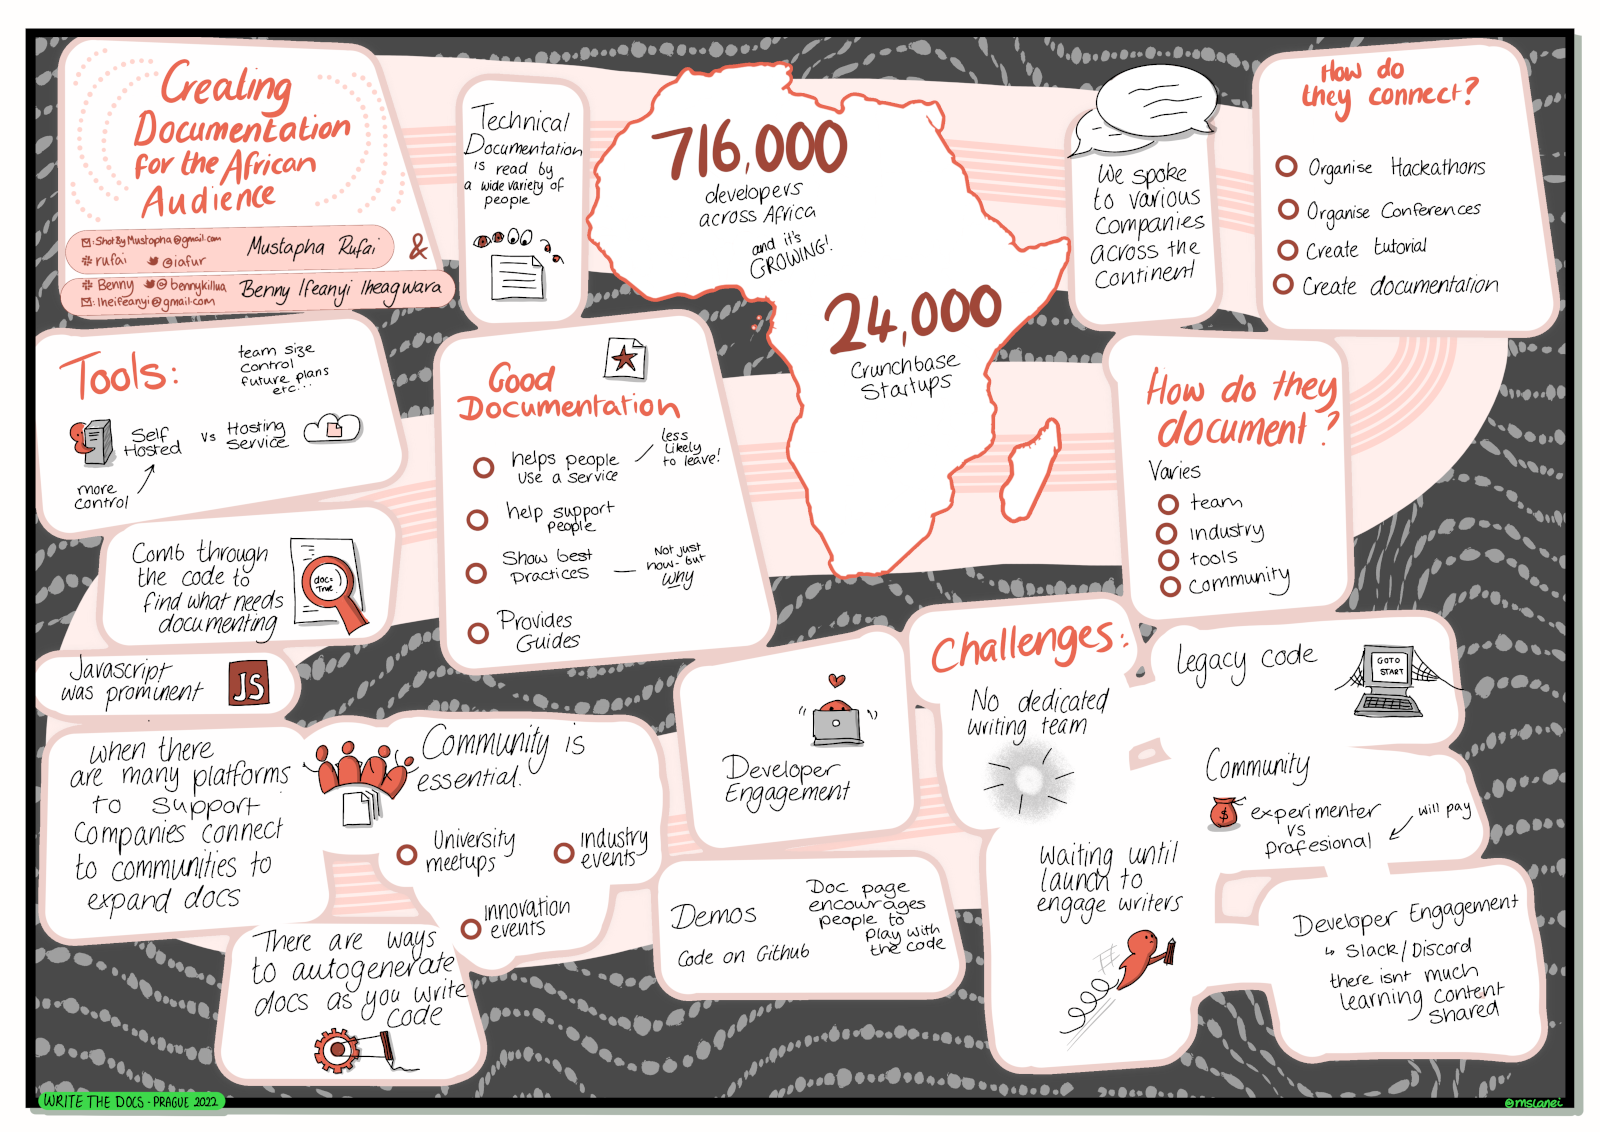 Creating
Documentation
for the African
Audience
✉: ShotByMustapha@gmail.com
# rufai @iafur
Mustapha Rufai
&
# Benny @bennykillua
✉: Iheifeanyi@gmail.com
Benny Ifeanyi Iheagwara
Technical
Documentation
is read by
a wide variety of
people
716,000
developers
across Africa
and it's
GROWING!
24,000
Crunchbase
Startups
We spoke
to various
companies
across the
continent
How do
they connect?
Organise Hackathons
Organise Conferences
Create tutorial
Create documentation
Tools:
team size
control
future plans
etc...
Self
Hosted
vs
Hosting
Service
more
control
Good
Documentation
helps people
use a service
less
likely
to leave!
help support
people
Show best
practices
Not just
how - but
why
Provides
Guides
How do they
document?
Varies
team
industry
tools
community
Comb through
the code to
find what needs
documenting
doc=
True.
Javascript
was prominent
JS
when there
are many platforms
to support
Companies connect
to communities to
expand docs
Community is
essential.
University
meetups
industry
events
innovation
events
There are ways
to autogenerate
docs as you write
code
Developer
Engagement
Demos
Code on Github
Doc page
encourages
people to
play with
the code
Challenges:
No dedicated
writing team
Waiting until
launch to
engage writers
legacy code
GOTO
START
Community
$
experimenter
vs
profesional
will pay
Developer Engagement
↳ Slack/Discord
there isnt much
learning content
shared
WRITE THE DOCS - PRAGUE 2022
@mslanei